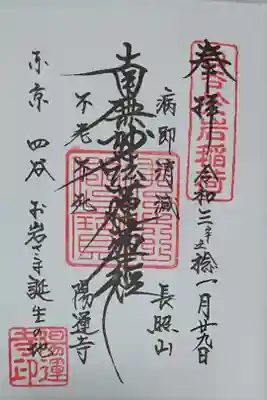 奉拝 令和三辛丑稔一月廿九日
病即消滅 長照山
南無妙法蓮華経
不老不死 陽運寺
東京 四谷 お岩さま誕生の地
陽運寺印